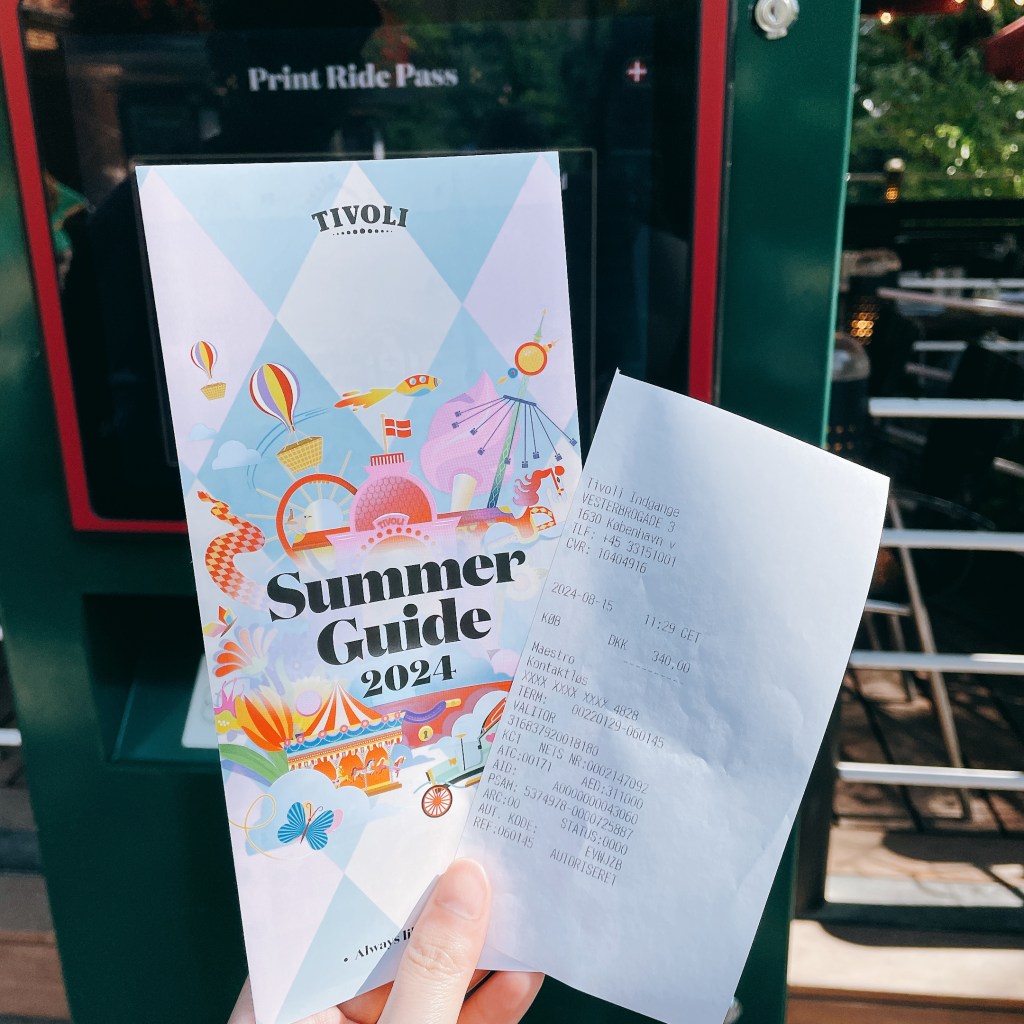 Print Ride Pass
TIVOLI
TIVOLI
Summer
Guide
2024
• Always li
Tivoli Indgange
VESTERBROGADE 3
1630 København v
TLF: +45 33151001
CVR: 10404916
2024-08-15 11:29 CET
KØB DKK 340,00
Maestro
Kontaktløs
XXXX XXXX XXXX 4828
TERM: 00220129-060145
VALITOR
31683792001818​0
KC1 NETS NR:0002147092
ATC:00171 AED:311000
AID: A0000000043060
PSAM: 5374978-0000725887
ARC:00 STATUS:0000
AUT. KODE: EVWJZB
REF:060145 AUTORISERET